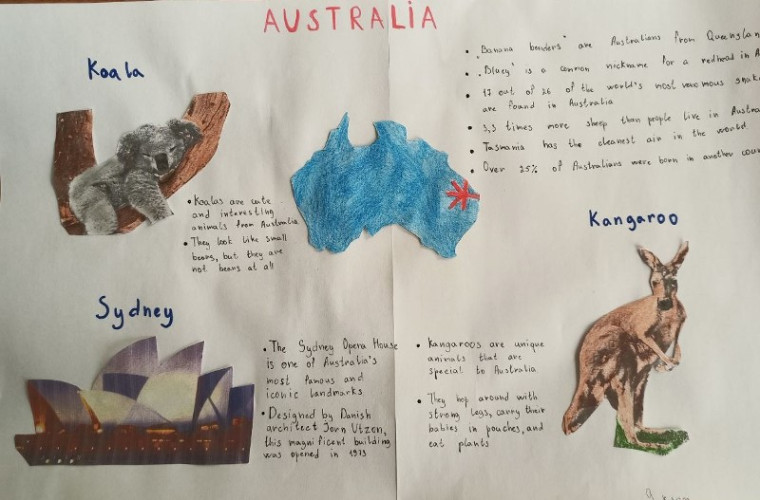 AUSTRALIA
Koala
• Koalas are cute
and interesting
animals from Australia
• They look like small
bears, but they are
not bears at all
• "Banana benders" are Australians from Queenslan
• "Bluey" is a common nickname for a redhead in A
• 17 out of 26 of the world's most venomous snak
are found in Australia
• 3,3 times more sheep than people live in Austra
• Tasmania has the cleanest air in the world.
• Over 25% of Australians were born in another coun
Sydney
• The Sydney Opera House
is one of Australia's
most famous and
iconic landmarks
• Designed by Danish
architect Jorn Utzon,
this magnificent building
was opened in 1973
Kangaroo
• Kangaroos are unique
animals that are
special to Australia
• They hop around with
strong legs, carry their
babies in pouches, and
eat plants